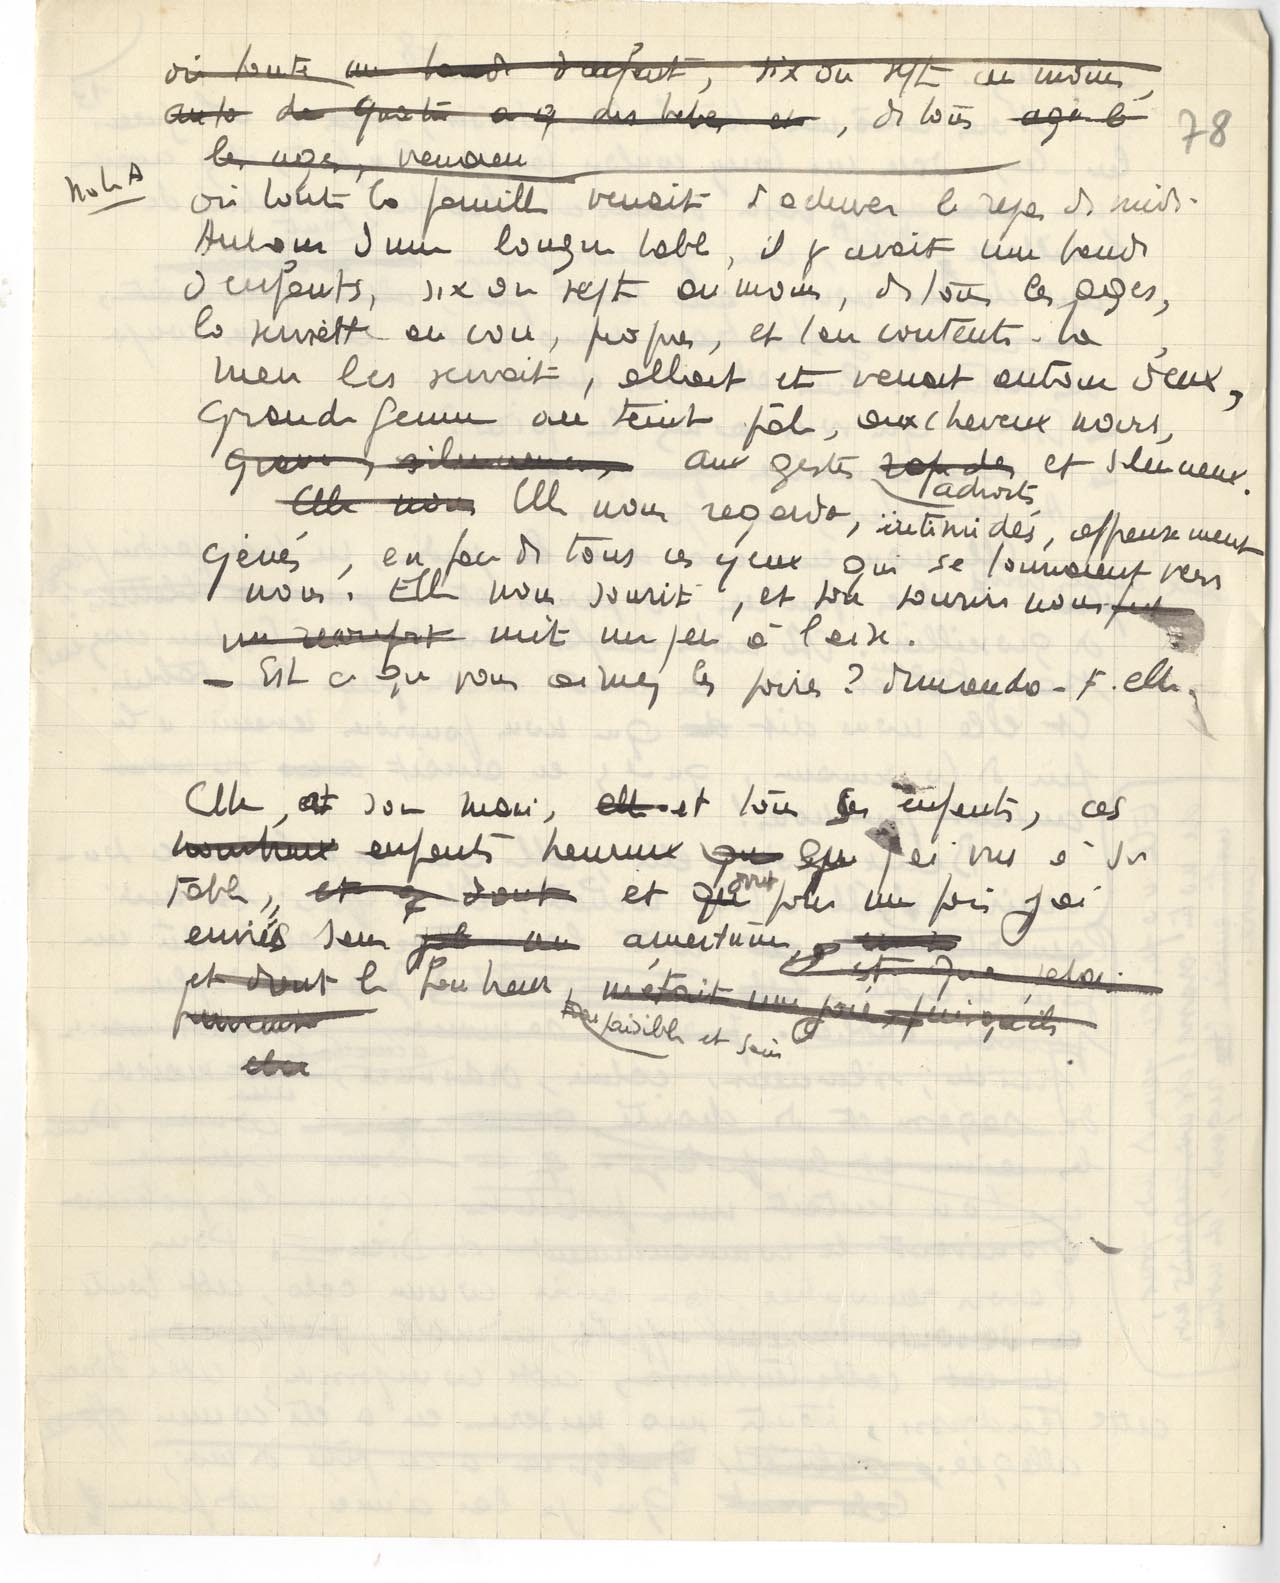 où toute une bande d'enfant, six ou sept au moins,
de quatre a des bebes et, de tous
les ages, venaien
78
Note A
où toute la famille venait d'achever le repas de midi.
Autour d'une longue table, il y avait une bande
d'enfants, six ou sept au moins, de tous les ages,
la serviette au cou, propres, et l'air contents. La
mère les servait, allait et venait autour d'eux,
grande femme au teint pâle, aux cheveux noirs,
grave, silencieuse, aux gestes rapides et silencieux.
adroits
Elle nous Elle nous regarda, intimidés, affreusement
gênés, en face de tous ces yeux qui se tournaient vers
nous. Elle nous sourit, et son sourire nous fut
un reconfort mit un peu à l'aise.
- Est ce que vous aimez les poires ? demanda-t-elle,
Elle, et son mari, elle et tous ses enfants, ces
nombreux enfants heureux que que j'ai vus à sa
table, et dont et que pour une fois j'ai
enviés sans amertume,
et dont le bonheur, m'était une joie, puisqu'ils
paisible et sain